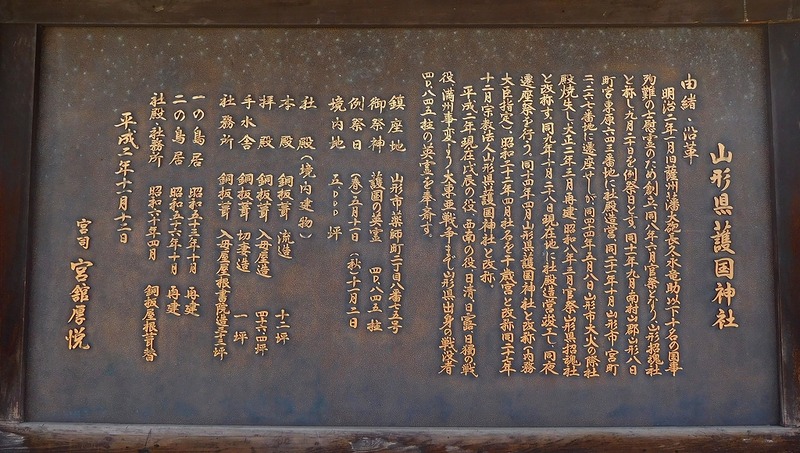 山形県護国神社
由緒・沿革
明治二年二月旧薩州藩大砲長久永竜助以下十名の国事
殉難の士慰霊のため創立、同八年六月官祭となり、山形招魂社
と称し九月二十日を例祭日とす、同二十年九月南村山郡山形八日
町宮東原六四三番地に社殿造営同二十年十月山形市宮町
二、二六七番地に遷座せしが同四十四年五月八日山形市大火の際社
殿焼失し、大正二年三月再建、昭和八年三月官祭山形県招魂社
と改称す、同九年十月二十八日現在地に社殿造営竣工し、同夜
遷座祭を行う、同十四年四月山形県護国神社と改称、内務
大臣指定)、昭和二十二年四月社名を千歳宮と改称同二十七年
十二月宗教法人山形県護国神社と改称、
平成二年現在戊辰の役、西南の役、日清、日露、日独の戦
役、満州事変より大東亜戦争まで山形県出身の戦没者
四〇、八四五柱の英霊を奉斎す。
鎮座地 山形市薬師町二丁目八番七五号
御祭神 護国の英霊 四〇、八四五柱
例祭日 (春)五月十一日 (秋)十一月二日
境内地 五、〇〇〇坪
社殿(境内建物)
本殿 銅板葺 流造 十二坪
拝殿 銅板葺 入母屋造 四十六・四坪
手水舎 銅板葺 切妻造 一坪
社務所 銅板葺 入母屋屋根書院造三十三坪
一の鳥居 昭和五十三年十月 再建
二の鳥居 昭和五十六年十月 再建
社殿、社務所 昭和六十年四月 銅板屋根葺替
平成二年十一月十二日
宮司 宮舘厚悦